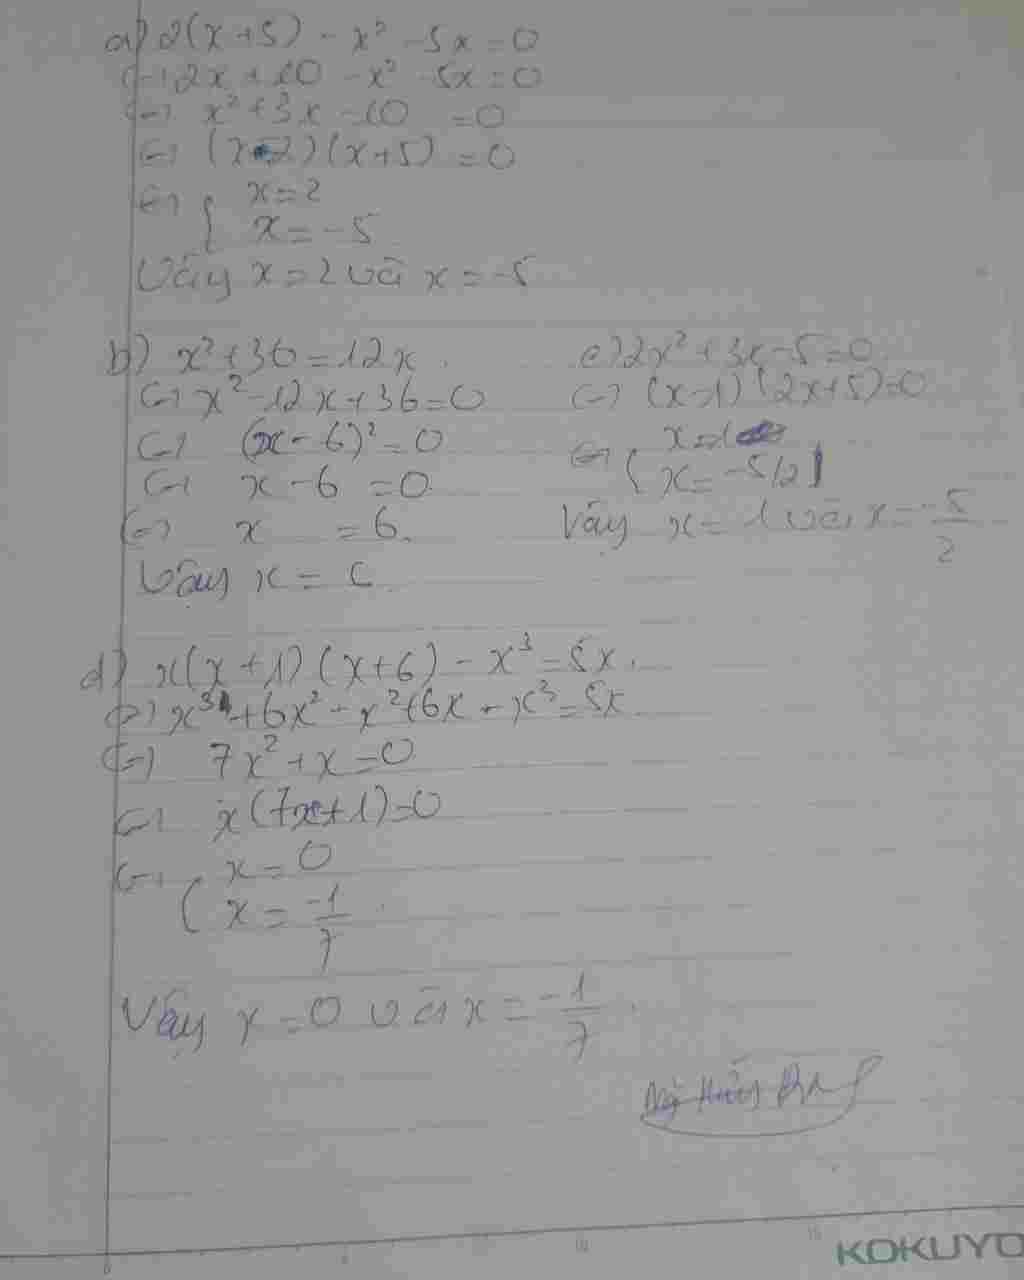 a) 2(x+5) - x² - 5x = 0
<=> 2x + 10 - x² - 5x = 0
<=> x² + 3x - 10 = 0
<=> (x-2)(x+5) = 0
<=> { x = 2
x = -5
Vậy x = 2 và x = -5
b) x² + 36 = 12x
<=> x² - 12x + 36 = 0
<=> (x - 6)² = 0
<=> x - 6 = 0
<=> x = 6.
Vậy x = 6
c) 2x² + 3x - 5 = 0
<=> (x-1)(2x+5) = 0
<=> { x = 1
x = -5/2
Vậy x = 1 và x = -5/2
d) x(x+1)(x+6) - x³ = 5x.
<=> x³ + 6x² + x² + 6x - x³ = 5x
<=> 7x² + x = 0
<=> x(7x+1) = 0
<=> { x = 0
x = -1/7
Vậy x = 0 và x = -1/7.
KOKUYO